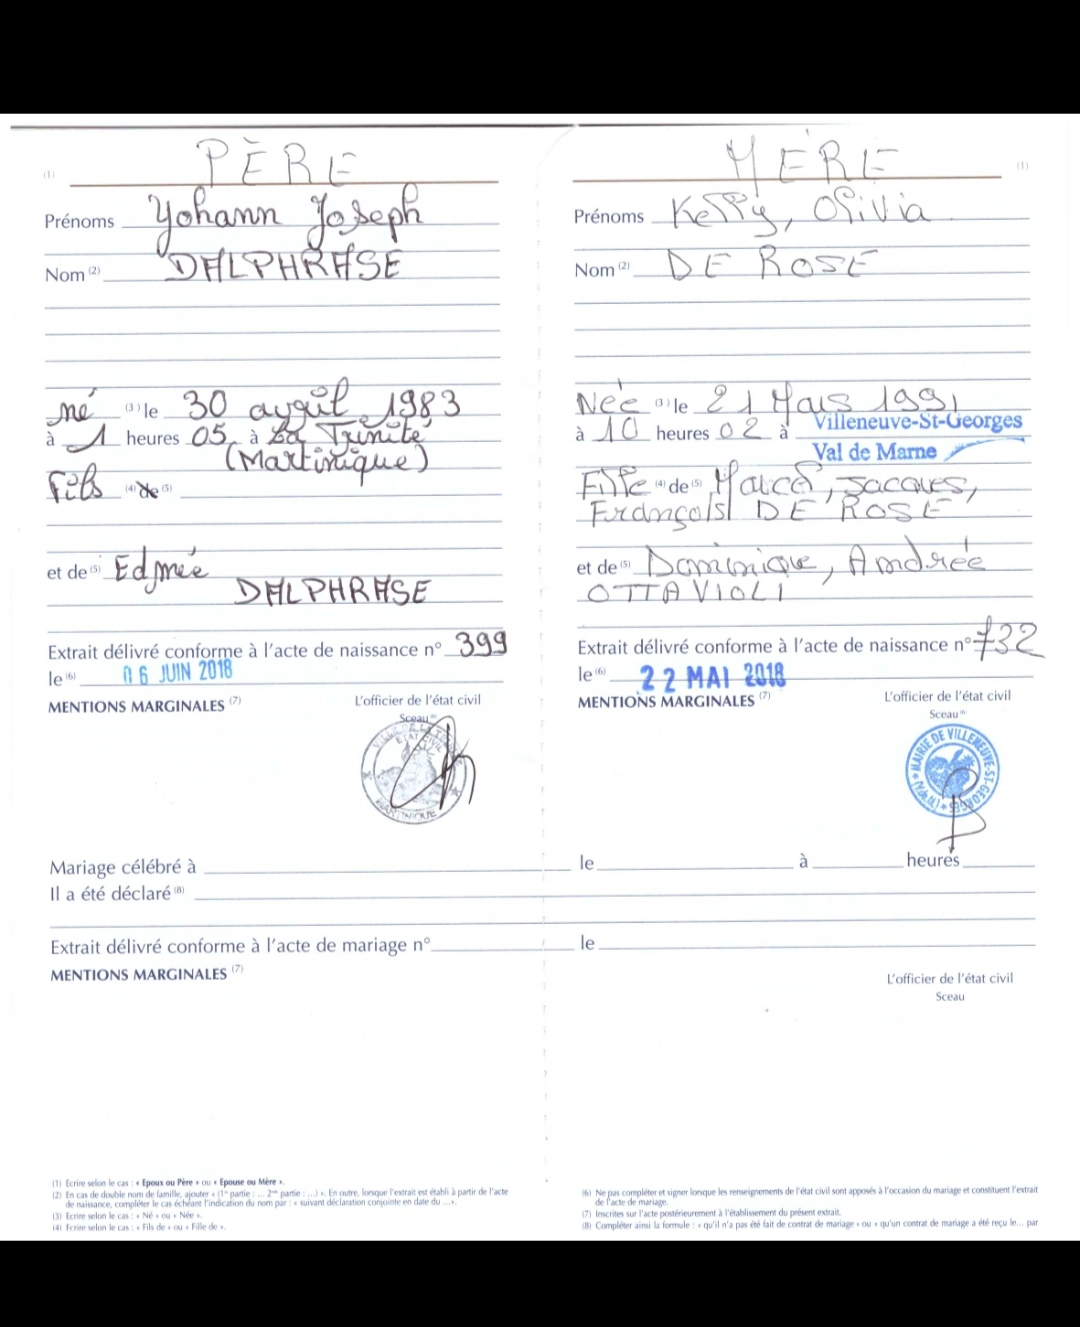 (1) PÈRE
Prénoms Yohann Joseph
Nom (2) DALPHRASE
né (3) le 30 avril 1983
à 1 heures 05 à La Trinité
(Martinique)
Fils (4) de (5)
et de (5) Edmée
DALPHRASE
Extrait délivré conforme à l'acte de naissance n° 399
le (6) 06 JUIN 2018
MENTIONS MARGINALES (7)
L'officier de l'état civil
Sceau (6)
ETAT CIVIL
MARTINIQUE
MÈRE (1)
Prénoms Kelly, Olivia
Nom (2) DE ROSE
Née (3) le 21 Mars 1991
à 10 heures 02 à Villeneuve-St-Georges
Val de Marne
Fille (4) de (5) Marcel, Jacques,
François DE ROSE
et de (5) Dominique, Andrée
OTTAVIOLI
Extrait délivré conforme à l'acte de naissance n° 732
le (6) 22 MAI 2018
MENTIONS MARGINALES (7)
L'officier de l'état civil
Sceau (6)
MAIRIE DE VILLENEUVE-ST-GEORGES
Mariage célébré à le à heures
Il a été déclaré (8)
Extrait délivré conforme à l'acte de mariage n° le
MENTIONS MARGINALES (7)
L'officier de l'état civil
Sceau
(1) Ecrire selon le cas : « Epoux ou Père » ou « Epouse ou Mère ».
(2) En cas de double nom de famille, ajouter « (1re partie : ... 2me partie : ...) ». En outre, lorsque l'extrait est établi à partir de l'acte
de naissance, compléter le cas échéant l'indication du nom par : « suivant déclaration conjointe en date du ... ».
(3) Ecrire selon le cas : « Né » ou « Née ».
(4) Ecrire selon le cas : « Fils de » ou « Fille de ».
(6) Ne pas compléter et signer lorsque les renseignements de l'état civil sont apposés à l'occasion du mariage et constituent l'extrait
de l'acte de mariage.
(7) Inscrites sur l'acte postérieurement à l'établissement du présent extrait.
(8) Compléter ainsi la formule : « qu'il n'a pas été fait de contrat de mariage » ou « qu'un contrat de mariage a été reçu le... par